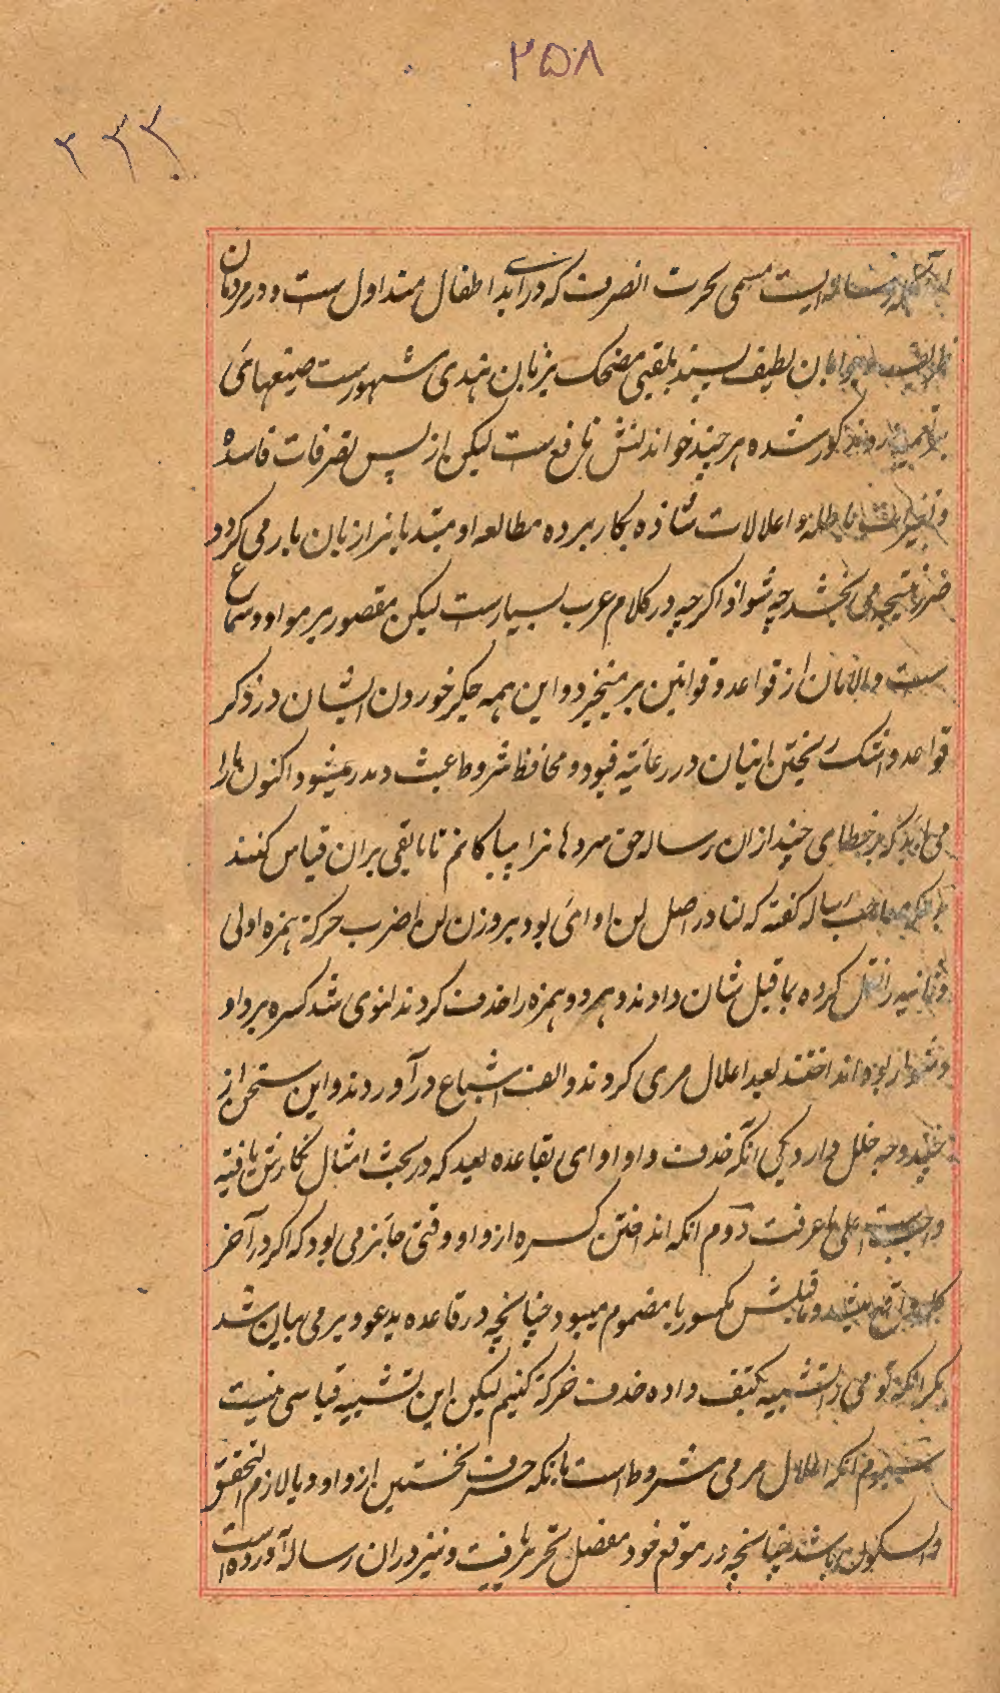 ۲۵۸
۲۳۳
رساله ایست مسمی بحرت الصرف که در ابتداء اطفال متداول ست و در مردمان
لطیف پسند بلقبی مضحک بزبان هندی مشهورست صیغهای
مذکور شده هر چند خواندنش نافع ست لیکن از بس تصرفات فاسده
و تغییرات باطله و اعلالات شاذه بکار برده مطالعه او مبتدیانرا زیان بار می گردد
ضرر نتیجه می بخشد چه شواذ اگرچه در کلام عرب بسیارست لیکن مقصور بر موارد سماع
ست والا امان از قواعد و قوانین برمیخیزد و این همه جگر خوردن ایشان در ذکر
قواعد و اشک ریختن اینان در رعایة قیود و محافظ شروط عبث و هدر میشود اکنون ما را
می باید که بر خطای چند ازان رساله حق مردمانرا بیاگاهانم تا بابقی بران قیاس کنند
رساله گفته که لنا در اصل لن اوای بود بروزن لن اضرب حرکة همزه اولی
و ثانیه را نقل کرده بما قبل شان دادند و هر دو همزه را حذف کردند لنوی شد کسره بر واو
دشوار بود انداختند بعد اعلال مری کردند و الف اشباع در آوردند و این سخن از
چند وجه خلل دارد یکی آنکه حذف واو اوای بقاعده یعد که در بحث امثال نگارش یافته
واجب ست علی ما عرفت دوم انکه انداختن کسره از واو وقتی جائز می بود که اگر در آخر
کلمه واقع میشد و ماقبلش مکسور یا مضموم میبود چنانچه در قاعده یدعو و یرمی بیان شد
مگر انکه تشبیه بکتف داده حذف حرکة کنیم لیکن این تشبیه قیاسی نیست
سیوم انکه اعلال مرمی مشروط است بانکه حرف نخستین از واو و یا لازم التحقق
والسکون باشد چنانچه در موقع خود مفصل تحریر یافت و نیز در ان رساله آورده است